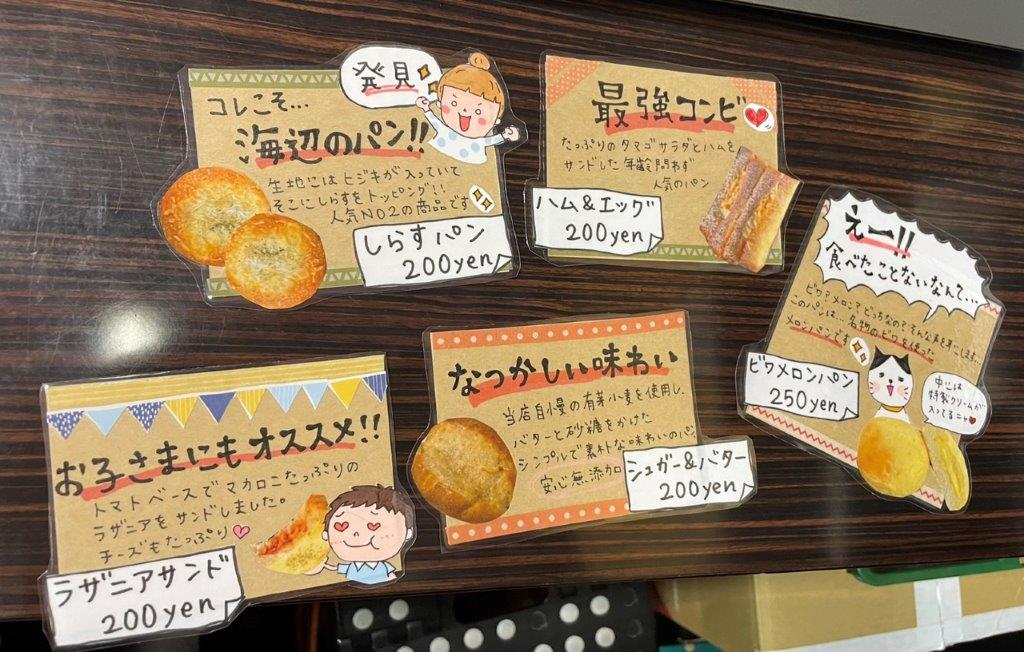 発見
コレこそ...
海辺のパン!!
生地にはヒジキが入っていて
そこにしらすをトッピング!!
人気NO2の商品です
しらすパン
200yen
最強コンビ
たっぷりのタマゴサラダとハムを
サンドした年齢問わず
人気のパン
ハム&エッグ
200yen
えー!!
食べたことないなんて...
ビワ?メロン?どっちなの?そんな声を耳にします...
このパンは...名物のビワを使った
メロンパンです
ビワメロンパン
250yen
中には
特製クリームが
入ってるニャ
お子さまにもオススメ!!
トマトベースでマカロニたっぷりの
ラザニアをサンドしました。
チーズもたっぷり
ラザニアサンド
200yen
なつかしい味わい
当店自慢の有芽小麦を使用し、
バターと砂糖をかけた
シンプルで素朴な味わいのパン
安心無添加
シュガー&バター
200yen